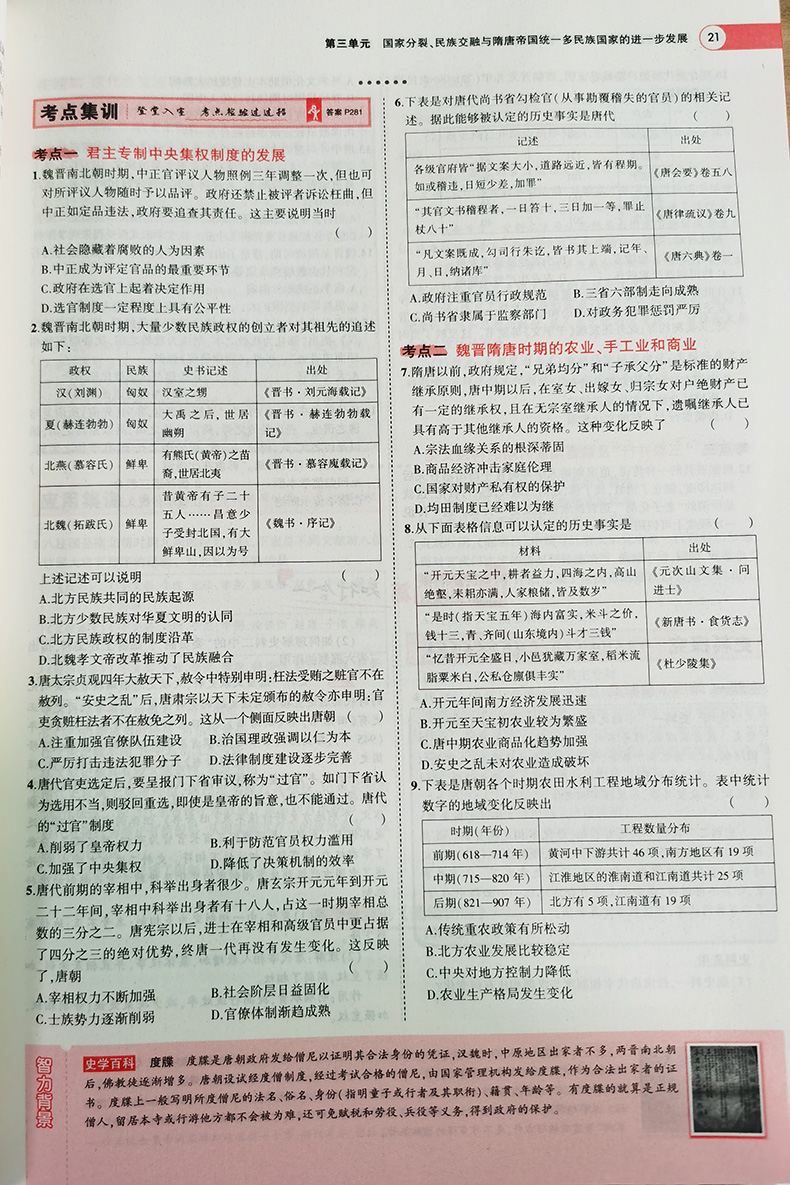 第三单元 国家分裂、民族交融与隋唐帝国统一多民族国家的进一步发展 21
考点集训 登堂入室 考点轻松过过招 答案P281
考点一 君主专制中央集权制度的发展
1.魏晋南北朝时期,中正官评议人物照例三年调整一次,但也可
对所评议人物随时予以品评。政府还禁止被评者诉讼枉曲,但
中正如定品违法,政府要追查其责任。这主要说明当时
( )
A.社会隐藏着腐败的人为因素
B.中正成为评定官品的最重要环节
C.政府在选官上起着决定作用
D.选官制度一定程度上具有公平性
2.魏晋南北朝时期,大量少数民族政权的创立者对其祖先的追述
如下:
政权 民族 史书记述 出处
汉(刘渊) 匈奴 汉室之甥 《晋书·刘元海载记》
夏(赫连勃勃) 匈奴 大禹之后,世居
幽朔 《晋书·赫连勃勃载
记》
北燕(慕容氏) 鲜卑 有熊氏(黄帝)之苗
裔,世居北夷 《晋书·慕容廆载记》
北魏(拓跋氏) 鲜卑 昔黄帝有子二十
五人……昌意少
子受封北国,有大
鲜卑山,因以为号 《魏书·序记》
上述记述可以说明 ( )
A.北方民族共同的民族起源
B.北方少数民族对华夏文明的认同
C.北方民族政权的制度沿革
D.北魏孝文帝改革推动了民族融合
3.唐太宗贞观四年大赦天下,赦令中特别申明:枉法受贿之赃官不在
赦列。“安史之乱”后,唐肃宗以天下未定颁布的赦令亦申明:官
吏贪赃枉法者不在赦免之列。这从一个侧面反映出唐朝 ( )
A.注重加强官僚队伍建设 B.治国理政强调以仁为本
C.严厉打击违法犯罪分子 D.法律制度建设逐步完善
4.唐代官吏选定后,要呈报门下省审议,称为“过官”。如门下省认
为选用不当,则驳回重选,即使是皇帝的旨意,也不能通过。唐代
的“过官”制度 ( )
A.削弱了皇帝权力 B.利于防范官员权力滥用
C.加强了中央集权 D.降低了决策机制的效率
5.唐代前期的宰相中,科举出身者很少。唐玄宗开元元年到开元
二十二年间,宰相中科举出身者有十八人,占这一时期宰相总
数的三分之二。唐宪宗以后,进士在宰相和高级官员中更占据
了四分之三的绝对优势,终唐一代再没有发生变化。这反映
了,唐朝 ( )
A.宰相权力不断加强 B.社会阶层日益固化
C.士族势力逐渐削弱 D.官僚体制渐趋成熟
6.下表是对唐代尚书省勾检官(从事勘覆稽失的官员)的相关记
述。据此能够被认定的历史事实是唐代 ( )
记述 出处
各级官府皆“据文案大小,道路远近,皆有程期。
如或稽违,日短少差,加罪” 《唐会要》卷五八
“其官文书稽程者,一日笞十,三日加一等,罪止
杖八十” 《唐律疏议》卷九
“凡文案既成,勾司行朱讫,皆书其上端,记年、
月、日,纳诸库” 《唐六典》卷一
A.政府注重官员行政规范 B.三省六部制走向成熟
C.尚书省隶属于监察部门 D.对政务犯罪惩罚严厉
考点二 魏晋隋唐时期的农业、手工业和商业
7.隋唐以前,政府规定,“兄弟均分”和“子承父分”是标准的财产
继承原则,唐中期以后,在室女、出嫁女、归宗女对户绝财产已
有一定的继承权,且在无宗室继承人的情况下,遗嘱继承人已
具有高于其他继承人的资格。这种变化反映了 ( )
A.宗法血缘关系的根深蒂固
B.商品经济冲击家庭伦理
C.国家对财产私有权的保护
D.均田制度已经难以为继
8.从下面表格信息可以认定的历史事实是 ( )
材料 出处
“开元天宝之中,耕者益力,四海之内,高山
绝壑,耒耜亦满,人家粮储,皆及数岁” 《元次山文集·问
进士》
“是时(指天宝五年)海内富实,米斗之价,
钱十三,青、齐间(山东境内)斗才三钱” 《新唐书·食货志》
“忆昔开元全盛日,小邑犹藏万家室,稻米流
脂粟米白,公私仓廪俱丰实” 《杜少陵集》
A.开元年间南方经济发展迅速
B.开元至天宝初农业较为繁盛
C.唐中期农业商品化趋势加强
D.安史之乱未对农业造成破坏
9.下表是唐朝各个时期农田水利工程地域分布统计。表中统计
数字的地域变化反映出 ( )
时期(年份) 工程数量分布
前期(618—714年) 黄河中下游共计46项,南方地区有19项
中期(715—820年) 江淮地区的淮南道和江南道共计25项
后期(821—907年) 北方有5项,江南道有19项
A.传统重农政策有所松动
B.北方农业发展比较稳定
C.中央对地方控制力降低
D.农业生产格局发生变化
智力背景
史学百科 度牒 度牒是唐朝政府发给僧尼以证明其合法身份的凭证,汉魏时,中原地区出家者不多,两晋南北朝
后,佛教徒逐渐增多。唐朝设试经度僧制度,经过考试合格的僧尼,由国家管理机构发给度牒,作为合法出家者的证
书。度牒上一般写明所度僧尼的法名、俗名、身份(指明童子或行者及其职衔)、籍贯、年龄等。有度牒的就算是正规
僧人,留居本寺或行游他方都不会被为难,还可免赋税和劳役、兵役等义务,得到政府的保护。